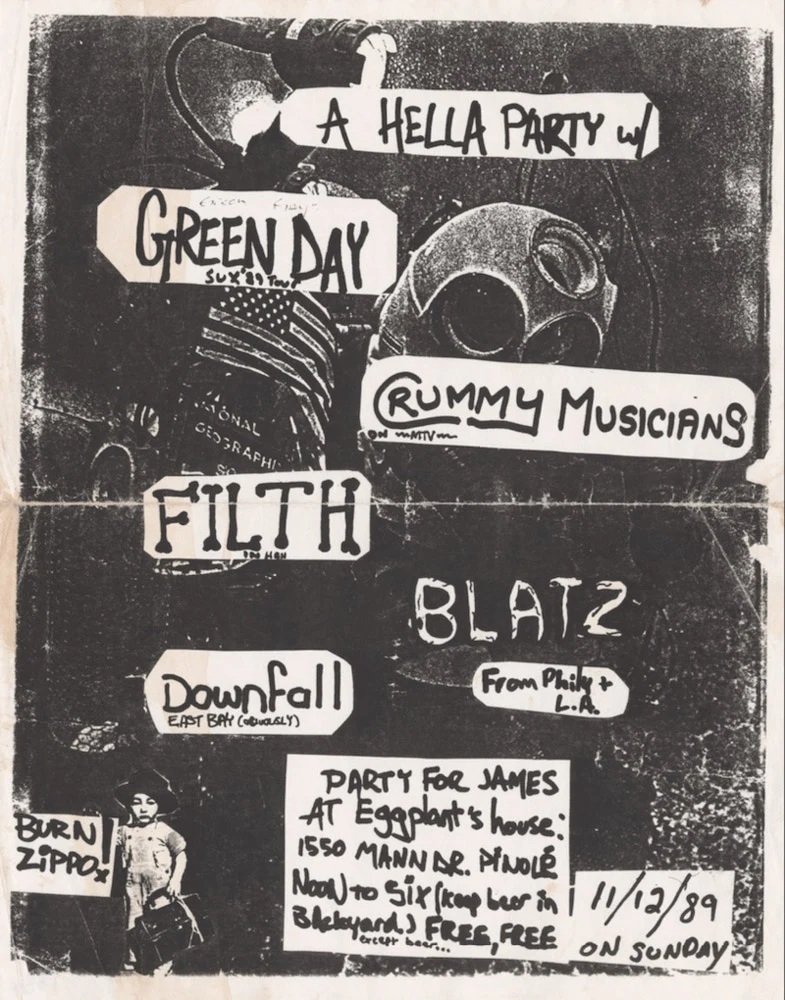 A HELLA PARTY w/
GREEN DAY
SUX '89 TOUR
CRUMMY MUSICIANS
ON MTV
FILTH
BLATZ
Downfall
EAST BAY (OBVIOUSLY)
From Phily +
L.A.
NATIONAL
GEOGRAPHI
SO
BURN
ZiPPO!
PARTY FOR JAMES
AT Eggplant's house:
1550 MANN DR. PINOLE
NOON TO SiX (keep beer in
BAckyard.) FREE, FREE
except beer...
11/12/89
ON SUNDAY